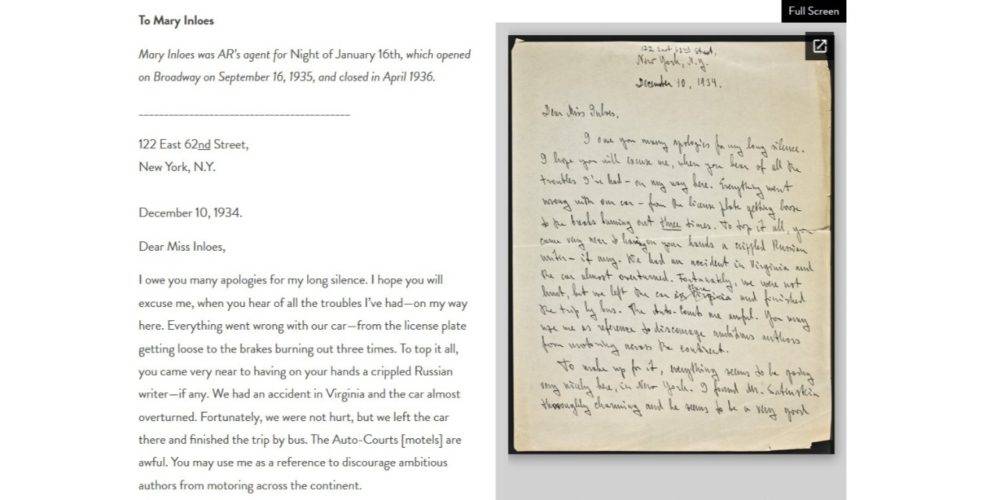 Full Screen
To Mary Inloes
Mary Inloes was AR's agent for Night of January 16th, which opened
on Broadway on September 16, 1935, and closed in April 1936.
122 East 62nd Street,
New York, N.Y.
December 10, 1934.
Dear Miss Inloes,
I owe you many apologies for my long silence. I hope you will
excuse me, when you hear of all the troubles I've had—on my way
here. Everything went wrong with our car—from the license plate
getting loose to the brakes burning out three times. To top it all,
you came very near to having on your hands a crippled Russian
writer—if any. We had an accident in Virginia and the car almost
overturned. Fortunately, we were not hurt, but we left the car
there and finished the trip by bus. The Auto-Courts [motels] are
awful. You may use me as a reference to discourage ambitious
authors from motoring across the continent.
122 East 62nd Street,
New York, N.Y.
December 10, 1934.
Dear Miss Inloes,
I owe you many apologies for my long silence.
I hope you will excuse me, when you hear of all the
troubles I've had – on my way here. Everything went
wrong with our car – from the license plate getting loose
to the burning out three times. To top it all, you
came very near to having on your hands a crippled Russian
writer – if any. We had an accident in Virginia and
the car almost overturned. Fortunately, we were not
hurt, but we left the car there and finished
the trip by bus. The Auto- are awful. You may
use me as reference to discourage ambitious authors
from motoring across the continent.
To make up for it, everything seems to be going
very nicely here, in New York. I found Mr.
thoroughly charming and he seems to be a very good